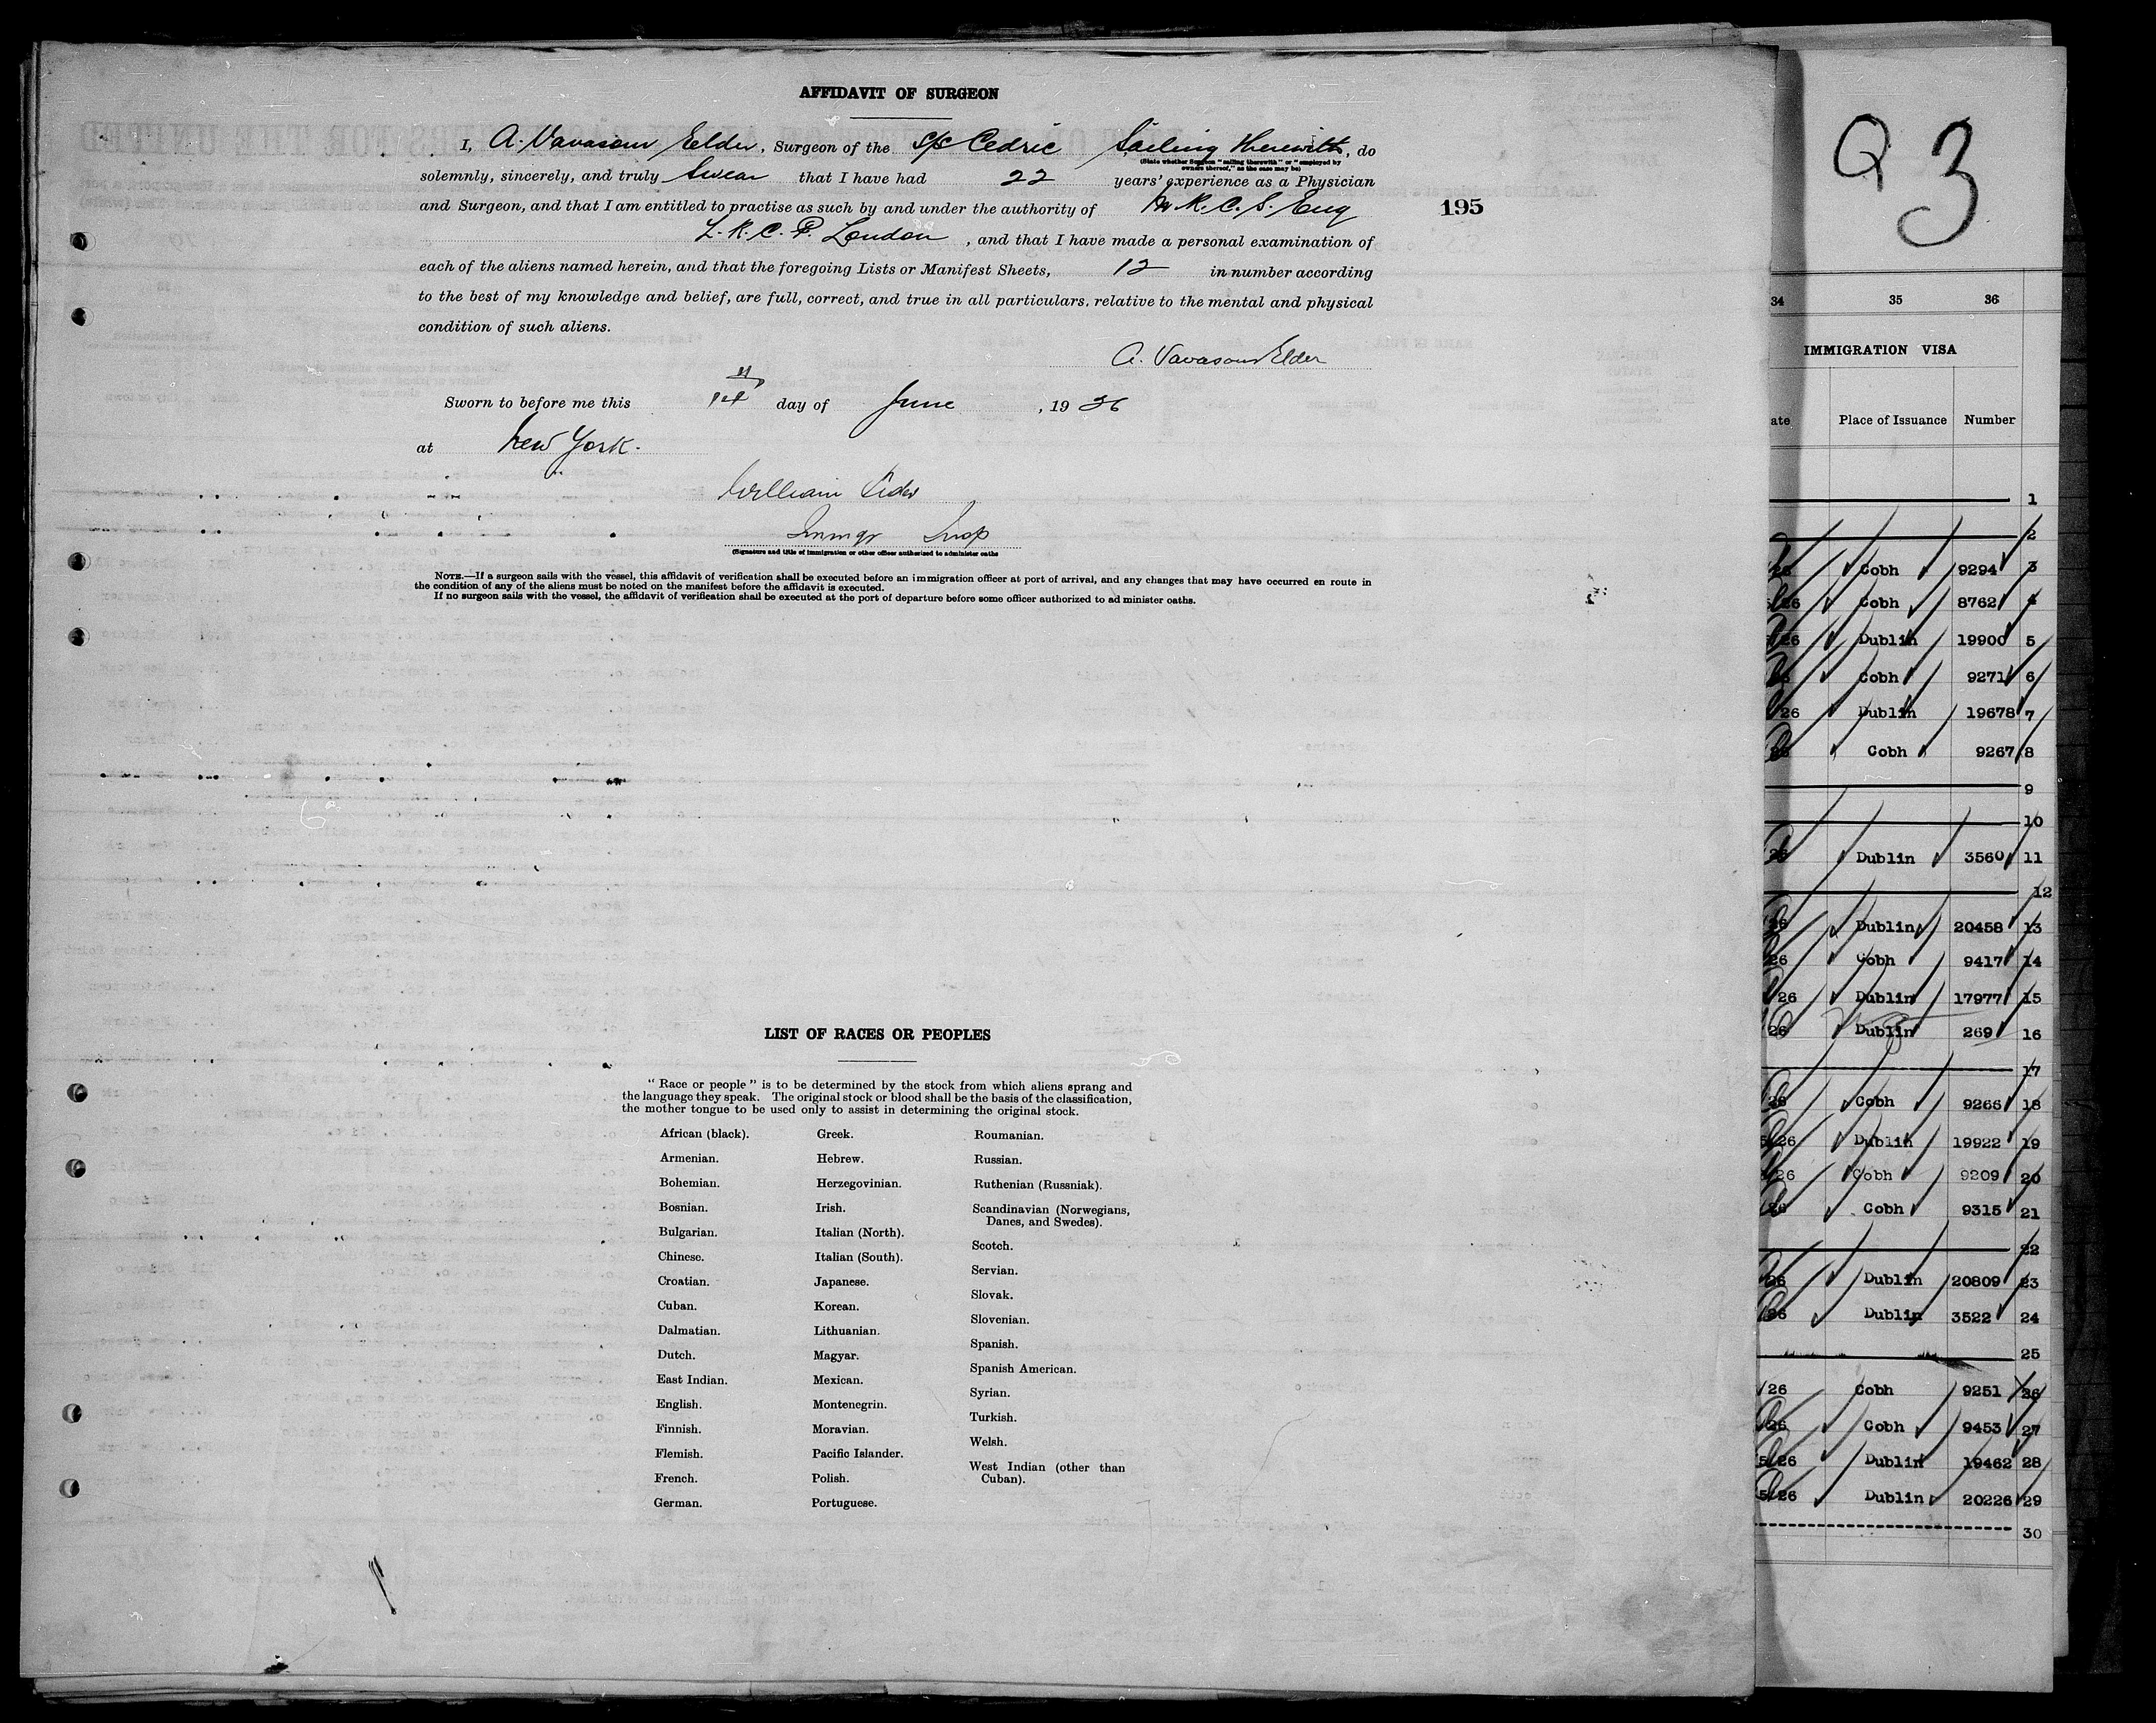 AFFIDAVIT OF SURGEON
I, A. Vavasour Elder, Surgeon of the S/S Cedric Sailing therewith, do
(State whether Surgeon "sailing therewith" or "employed by
owners thereof," as the case may be)
solemnly, sincerely, and truly swear that I have had 22 years' experience as a Physician
and Surgeon, and that I am entitled to practise as such by and under the authority of M.R.C.S. Eng
L.R.C.P. London, and that I have made a personal examination of
each of the aliens named herein, and that the foregoing Lists or Manifest Sheets, 12 in number according
to the best of my knowledge and belief, are full, correct, and true in all particulars, relative to the mental and physical
condition of such aliens.
195
A. Vavasour Elder
Sworn to before me this 1st day of June, 1926
at New York.
William
Immgr Insp
(Signature and title of immigration or other officer authorized to administer oaths
NOTE.—If a surgeon sails with the vessel, this affidavit of verification shall be executed before an immigration officer at port of arrival, and any changes that may have occurred en route in
the condition of any of the aliens must be noted on the manifest before the affidavit is executed.
If no surgeon sails with the vessel, the affidavit of verification shall be executed at the port of departure before some officer authorized to ad minister oaths.
LIST OF RACES OR PEOPLES
"Race or people" is to be determined by the stock from which aliens sprang and
the language they speak. The original stock or blood shall be the basis of the classification,
the mother tongue to be used only to assist in determining the original stock.
African (black).
Armenian.
Bohemian.
Bosnian.
Bulgarian.
Chinese.
Croatian.
Cuban.
Dalmatian.
Dutch.
East Indian.
English.
Finnish.
Flemish.
French.
German.
Greek.
Hebrew.
Herzegovinian.
Irish.
Italian (North).
Italian (South).
Japanese.
Korean.
Lithuanian.
Magyar.
Mexican.
Montenegrin.
Moravian.
Pacific Islander.
Polish.
Portuguese.
Roumanian.
Russian.
Ruthenian (Russniak).
Scandinavian (Norwegians,
Danes, and Swedes).
Scotch.
Servian.
Slovak.
Slovenian.
Spanish.
Spanish American.
Syrian.
Turkish.
Welsh.
West Indian (other than
Cuban).
3
34 35 36
IMMIGRATION VISA
ate Place of Issuance Number
1
2
Cobh 9294 3
26 Cobh 8762 4
26 Dublin 19900 5
Cobh 9271 6
26 Dublin 19678 7
Cobh 9267 8
9
10
26 Dublin 3560 11
12
26 Dublin 20458 13
26 Cobh 9417 14
/26 Dublin 17977 15
26 Dublin 269 16
17
26 Cobh 9266 18
26 Dublin 19922 19
/26 Cobh 9209 20
26 Cobh 9315 21
22
26 Dublin 20809 23
26 Dublin 3522 24
25
/26 Cobh 9251 26
26 Cobh 9453 27
5/26 Dublin 19462 28
5/26 Dublin 20226 29
30